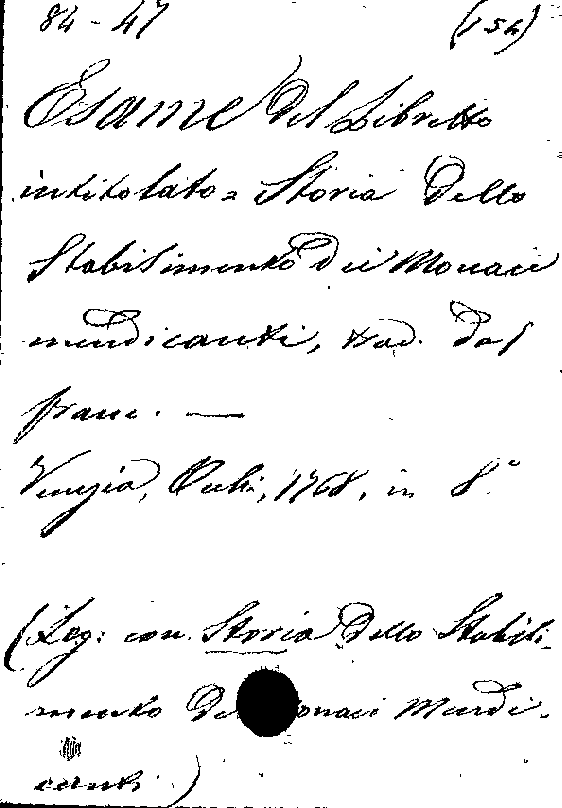 84-47 (154)
Esame del Libretto
intitolato = Storia dello
Stabilimento dei Monaci
mendicanti, trad. dal
franc. —
Venezia, Occhi, 1768, in 8°
(Leg: con Storia dello Stabili-
mento de onaci Mendi-
canti.)